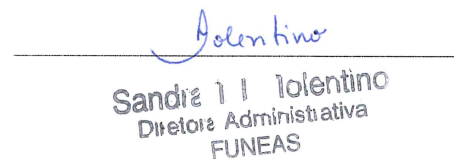 Tolentino
Sandra Tolentino
Diretora Administrativa
FUNEAS